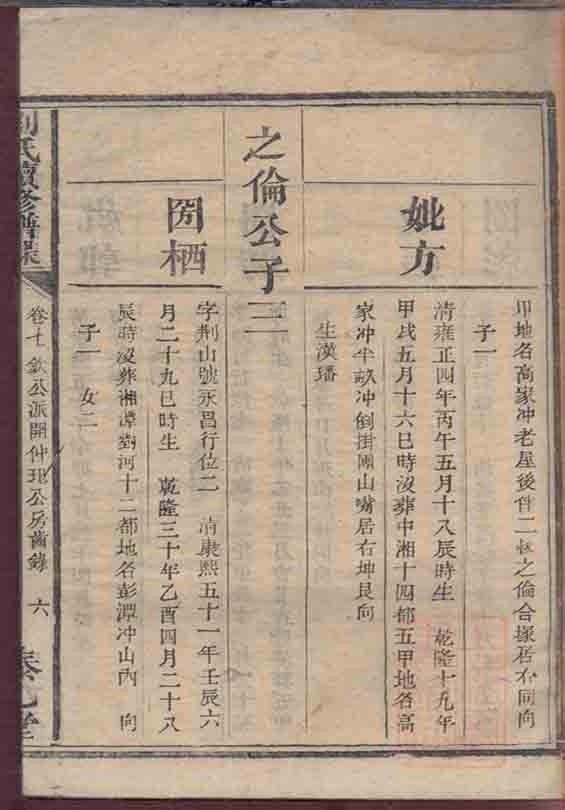 甲地名高家冲老屋後仵二 之倫合塚居右同向
子一
妣方
清雍正四年丙午五月十八辰時生 乾隆十九年
甲戌五月十六巳時沒葬中湘十四都五甲地名高
家冲半畝冲倒掛 山嘴居右坤艮向
生漢璠
之倫公子三
圀栖
字荆山號永昌行位二 清康熙五十一年壬辰六
月二十九巳時生 乾隆三十年乙酉四月二十八
辰時沒葬湘潭對河十二都地名彭潭冲山內 向
子一 女二
劉氏續修譜
卷七 欽公派開仲 公房齒錄 六
堂